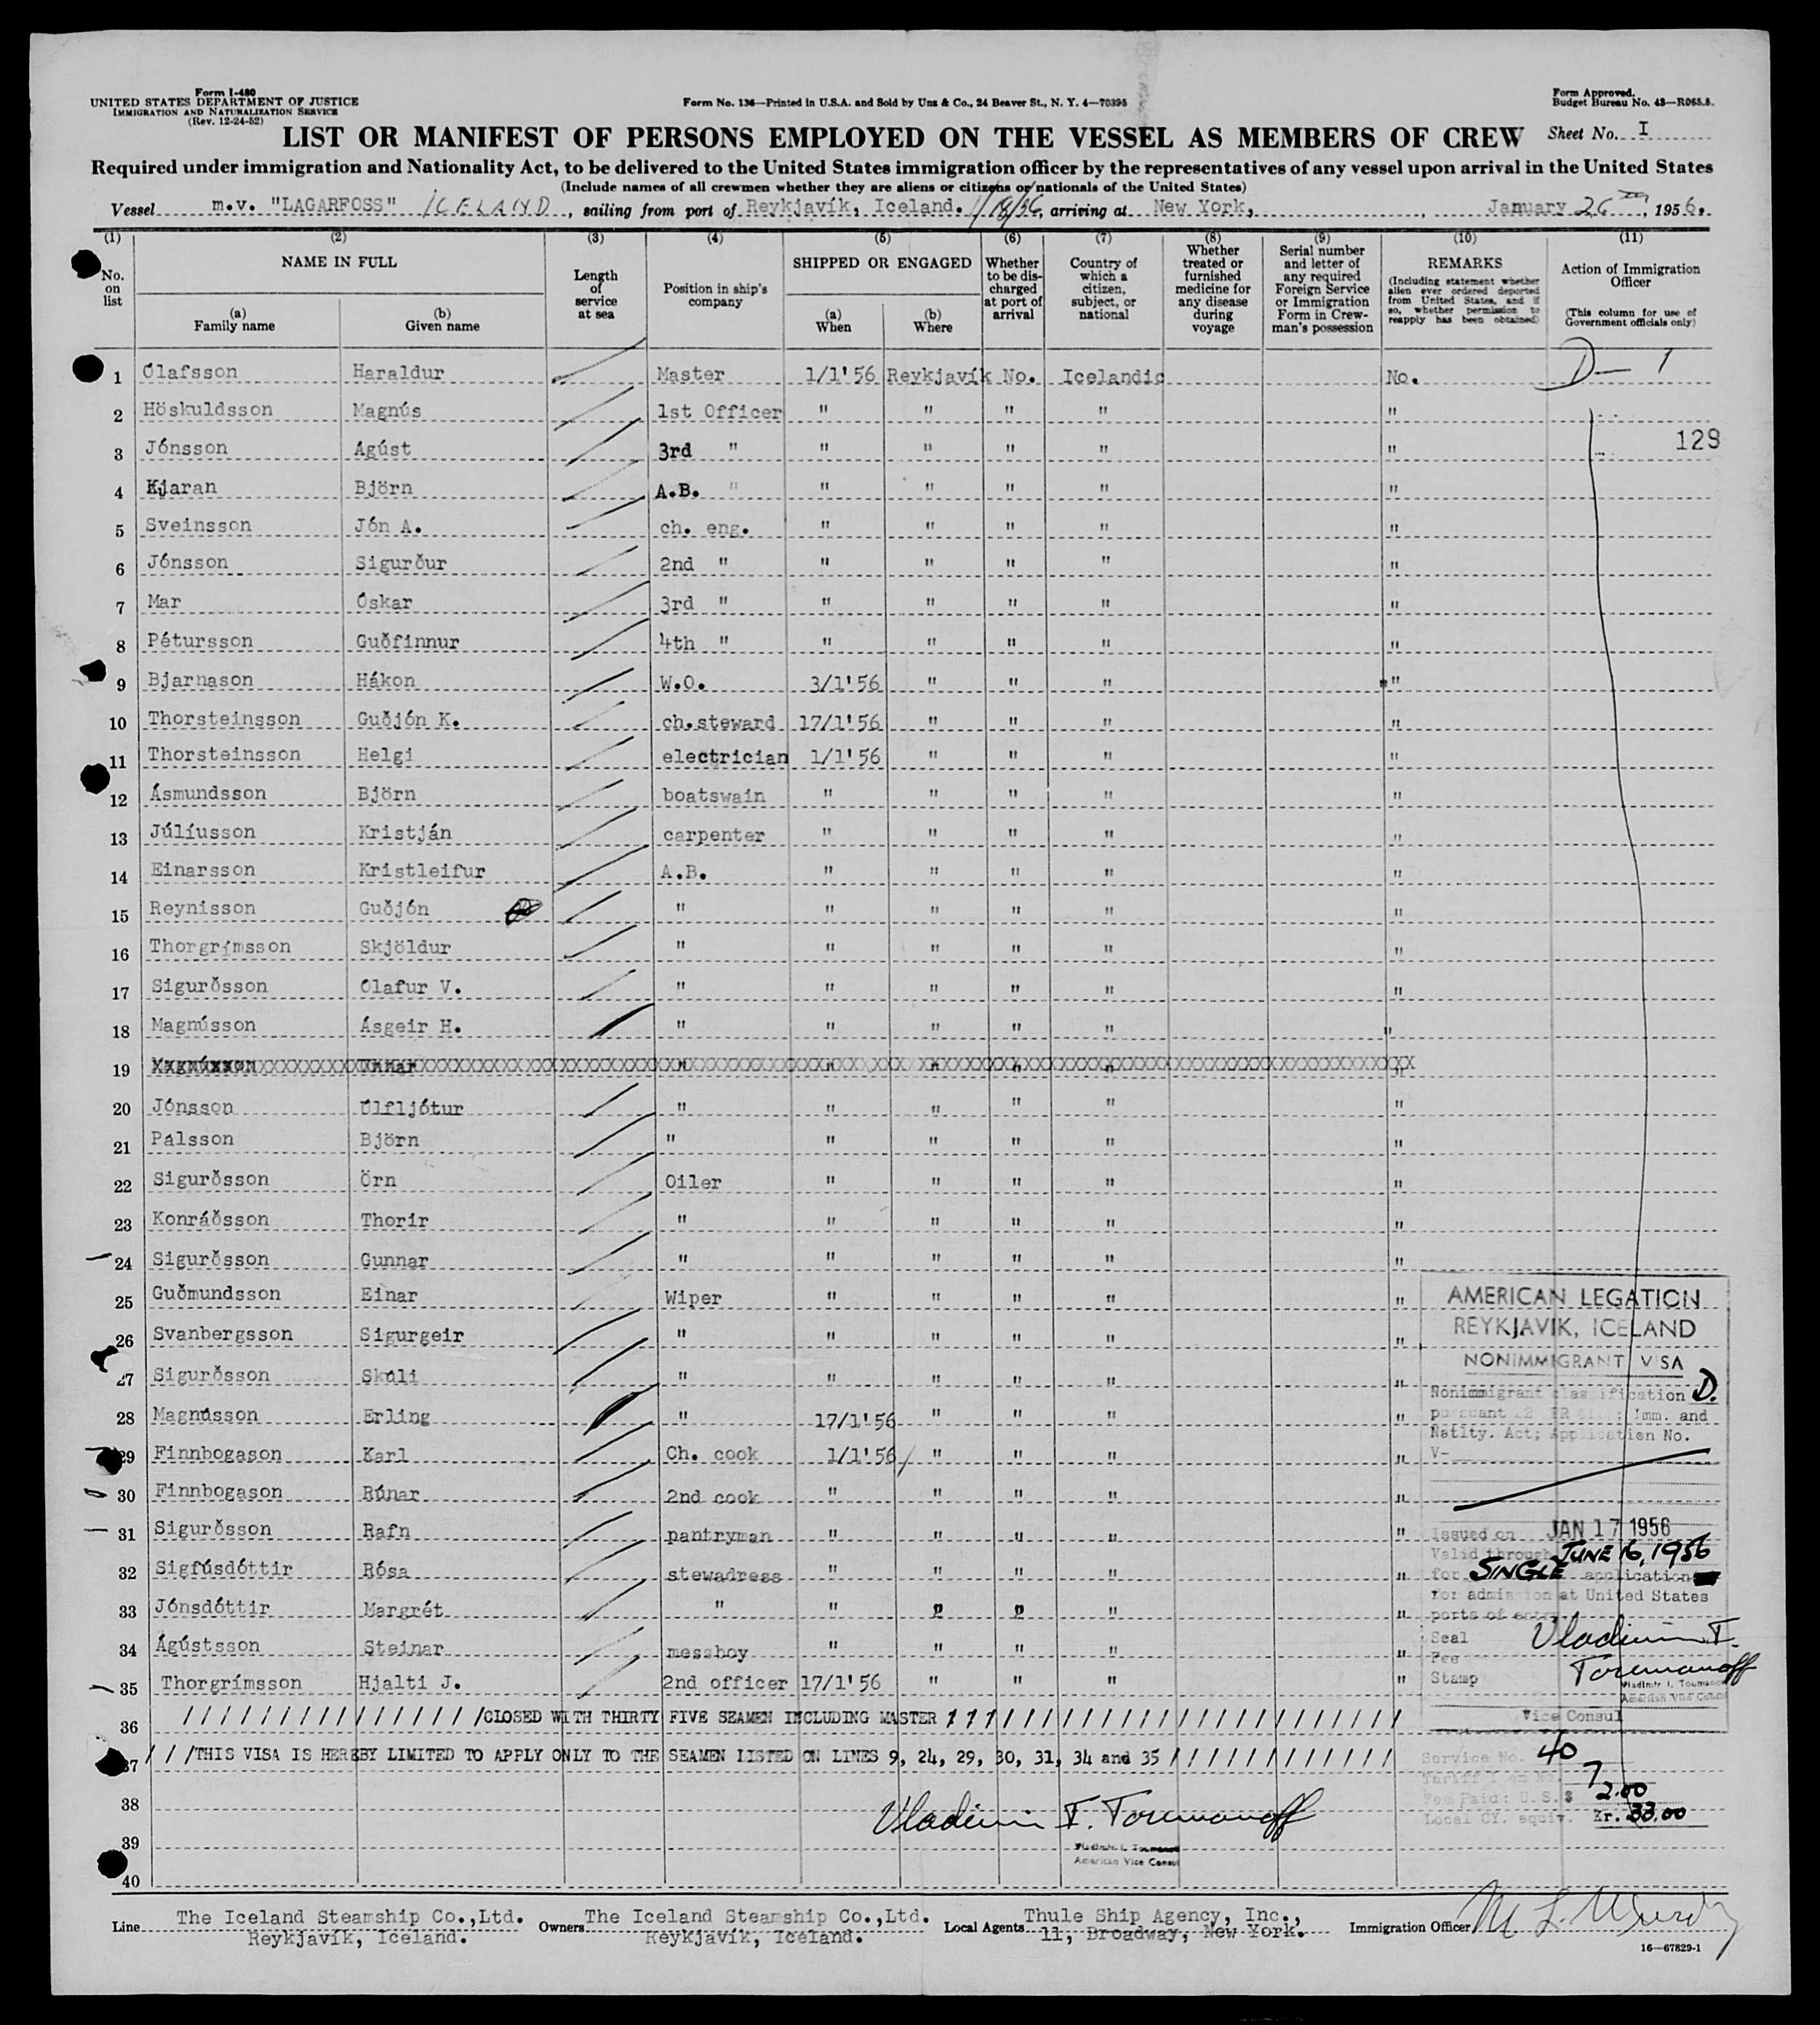 Form I-480
UNITED STATES DEPARTMENT OF JUSTICE
IMMIGRATION AND NATURALIZATION SERVICE
(Rev. 12-24-52)
Form No. 136—Printed in U.S.A. and Sold by Unz & Co., 24 Beaver St., N. Y. 4—70395
Form Approved.
Budget Bureau No. 43—R065.5.
LIST OR MANIFEST OF PERSONS EMPLOYED ON THE VESSEL AS MEMBERS OF CREW
Sheet No. I
Required under immigration and Nationality Act, to be delivered to the United States immigration officer by the representatives of any vessel upon arrival in the United States
(Include names of all crewmen whether they are aliens or citizens or nationals of the United States)
Vessel m.v. "LAGARFOSS" ICELAND, sailing from port of Reykjavík, Iceland. 1/18/56, arriving at New York, January 26, 1956.
(1) (2) (3) (4) (5) (6) (7) (8) (9) (10) (11)
No. on list
NAME IN FULL
(a) Family name
(b) Given name
Length of service at sea
Position in ship's company
SHIPPED OR ENGAGED
(a) When
(b) Where
Whether to be discharged at port of arrival
Country of which a citizen, subject, or national
Whether treated or furnished medicine for any disease during voyage
Serial number and letter of any required Foreign Service or Immigration Form in Crewman's possession
REMARKS
(Including statement whether alien ever ordered deported from United States, and if so, whether permission to reapply has been obtained)
Action of Immigration Officer
(This column for use of Government officials only)
1 Ólafsson Haraldur Master 1/1'56 Reykjavík No. Icelandic No. D— 1
2 Höskuldsson Magnús 1st Officer " " " " "
3 Jónsson Ágúst 3rd " " " " " " 129
4 Kjaran Björn A.B. " " " " " "
5 Sveinsson Jón A. ch. eng. " " " " "
6 Jónsson Sigurður 2nd " " " " " "
7 Mar Óskar 3rd " " " " " "
8 Pétursson Guðfinnur 4th " " " " " "
9 Bjarnason Hákon W.O. 3/1'56 " " " "
10 Thorsteinsson Guðjón K. ch.steward 17/1'56 " " " "
11 Thorsteinsson Helgi electrician 1/1'56 " " " "
12 Ásmundsson Björn boatswain " " " " "
13 Júlíusson Kristján carpenter " " " " "
14 Einarsson Kristleifur A.B. " " " " "
15 Reynisson Guðjón " " " " " "
16 Thorgrímsson Skjöldur " " " " " "
17 Sigurðsson Ólafur V. " " " " " "
18 Magnússon Ásgeir H. " " " " " "
19 " " " " " "
20 Jónsson Úlfljótur " " " " " "
21 Pálsson Björn " " " " " "
22 Sigurðsson Örn Oiler " " " " "
23 Konráðsson Thorir " " " " " "
24 Sigurðsson Gunnar " " " " " "
25 Guðmundsson Einar Wiper " " " " "
26 Svanbergsson Sigurgeir " " " " " "
27 Sigurðsson Skúli " " " " " "
28 Magnússon Erling " 17/1'56 " " " "
29 Finnbogason Karl Ch. cook 1/1'56 " " " "
30 Finnbogason Rúnar 2nd cook " " " " "
31 Sigurðsson Rafn pantryman " " " " "
32 Sigfúsdóttir Rósa stewadress " " " " "
33 Jónsdóttir Margrét " " " " " "
34 Ágústsson Steinar messboy " " " " "
35 Thorgrímsson Hjalti J. 2nd officer 17/1'56 " " " "
36 ////////////////CLOSED WITH THIRTY FIVE SEAMEN INCLUDING MASTER ////////////////////////
37 ///THIS VISA IS HEREBY LIMITED TO APPLY ONLY TO THE SEAMEN LISTED ON LINES 9, 24, 29, 30, 31, 34 and 35 /////////////
38
39
40
AMERICAN LEGATION
REYKJAVIK, ICELAND
NONIMMIGRANT VISA
Nonimmigrant classification D.
pursuant 22 Imm. and
Natlty. Act; Application No.
V-
Issued on JAN 17 1956
Valid through JUNE 16, 1956
for SINGLE application
for admission at United States
ports of entry
Seal Vladimir I.
Fee
Stamp Toumanoff
Vladimir I. Toumanoff
American Vice Consul
Vice Consul
Service No. 40
Tariff Item No. 7
Fee Paid: U.S.$ 2.00
Local CY. equiv. Kr. 33.00
Vladimir I. Toumanoff
Vladimir I. Toumanoff
American Vice Consul
Line The Iceland Steamship Co.,Ltd. Reykjavík, Iceland.
Owners The Iceland Steamship Co.,Ltd. Reykjavík, Iceland.
Local Agents Thule Ship Agency, Inc., 11, Broadway, New York.
Immigration Officer
16—67829-1